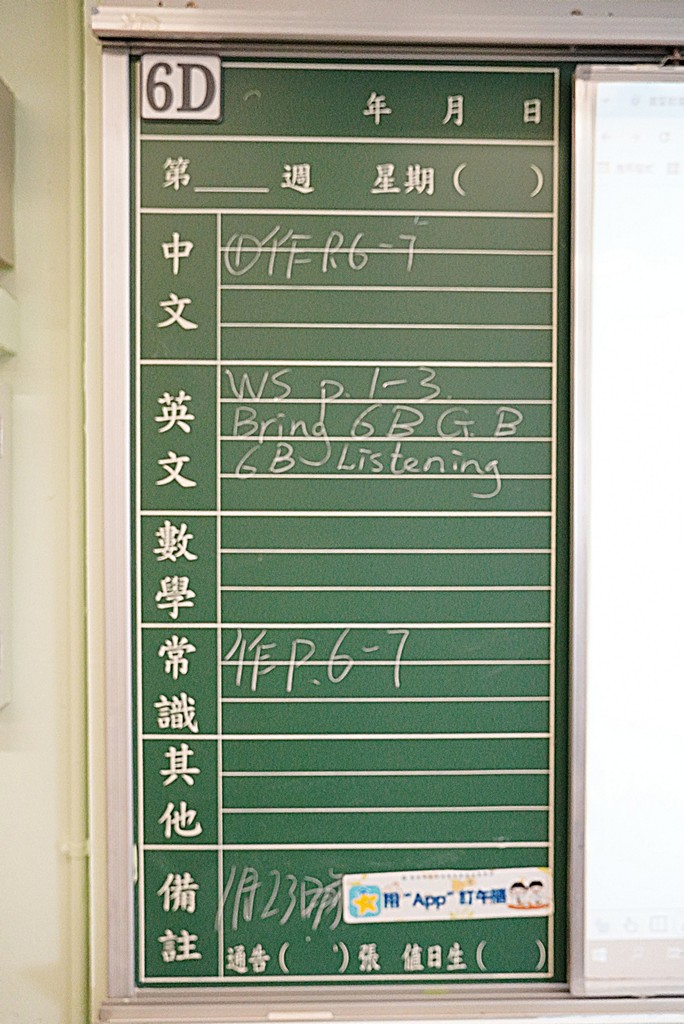 6D
年 月 日
第____週 星期( )
中文
①作 P.6-7
英文
WS p. 1-3.
Bring 6B G.B
6B Listening
數學
常識
作 P.6-7
其他
備註
1月23日
用“App”訂午膳
通告( )張 值日生( )